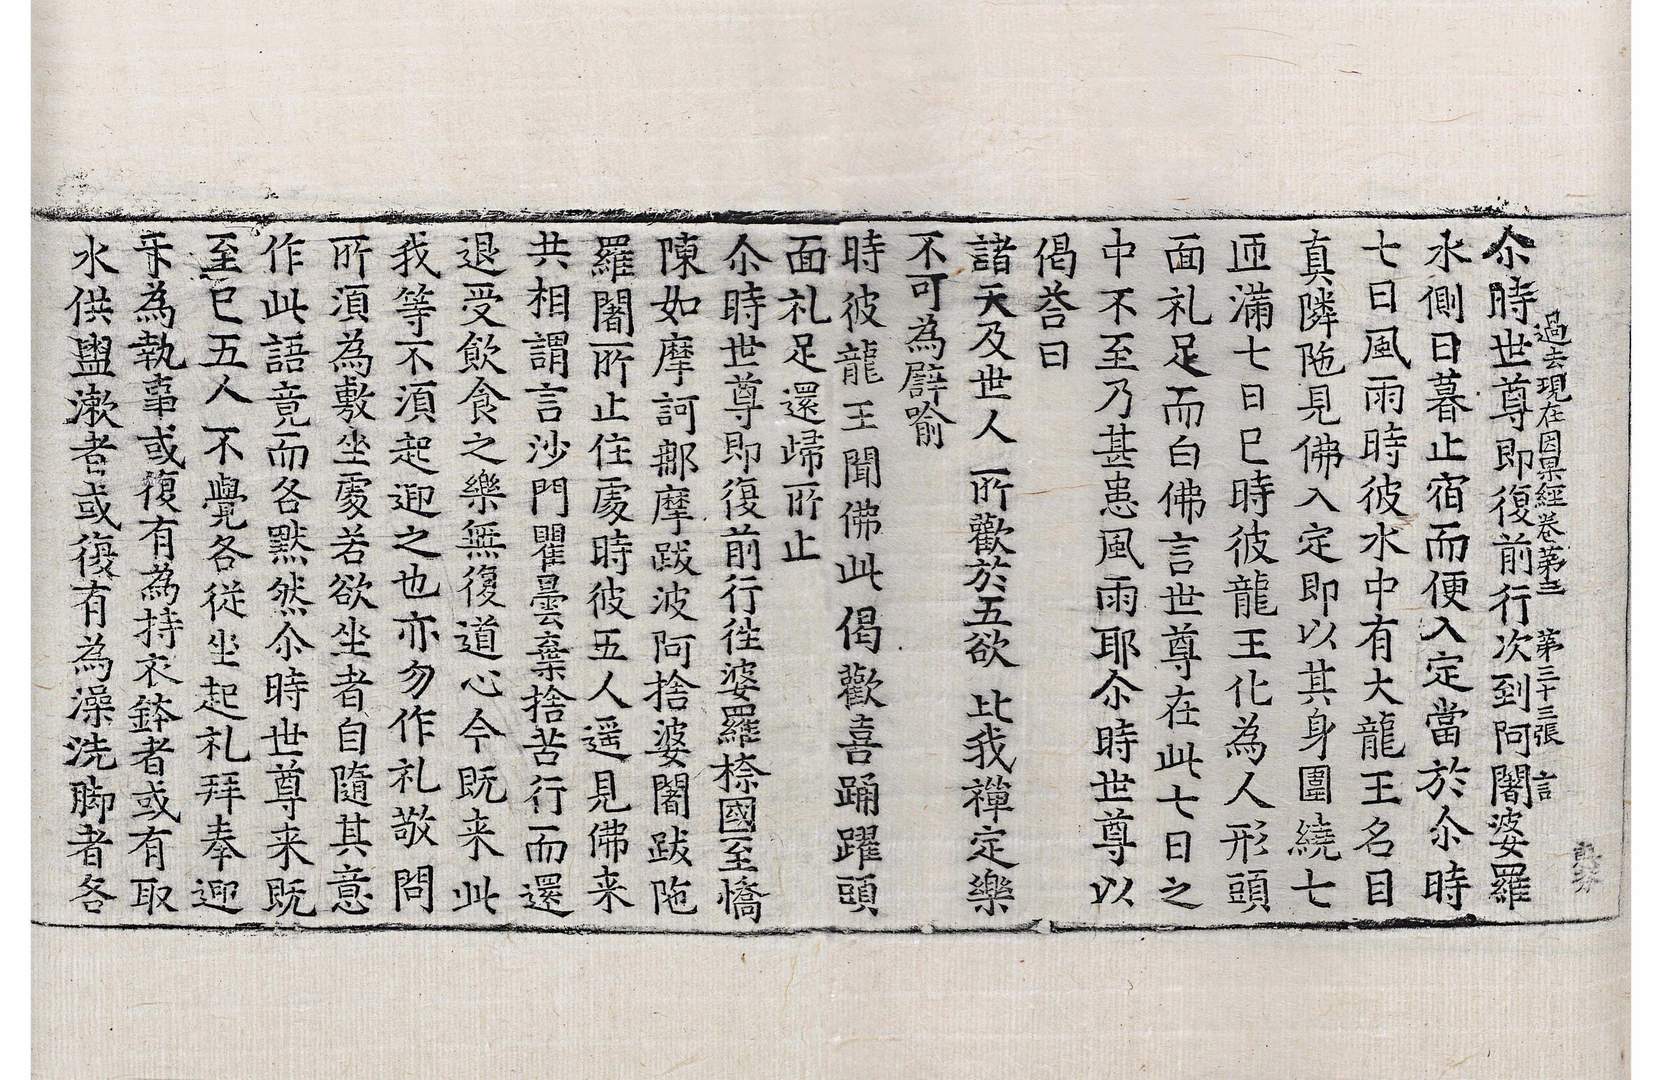 過去現在因果經卷第三 第三十三張 言
尒時世尊即復前行次到阿闍婆羅
水側日暮止宿而便入定當於尒時
七日風雨時彼水中有大龍王名目
真隣陁見佛入定即以其身圍繞七
迊滿七日已時彼龍王化為人形頭
面礼足而白佛言世尊在此七日之
中不至乃甚患風雨耶尒時世尊以
偈荅曰
諸天及世人 所歡於五欲 比我禪定樂
不可為譬喻
時彼龍王聞佛此偈歡喜踊躍頭
面礼足還歸所止
尒時世尊即復前行徃婆羅㮈國至憍
陳如摩訶那摩跋波阿捨婆闍跋陁
羅闍所止住處時彼五人遥見佛来
共相謂言沙門瞿曇棄捨苦行而還
退受飲食之樂無復道心今既来此
我等不須起迎之也亦勿作礼敬問
所須為敷坐處若欲坐者自隨其意
作此語竟而各默然尒時世尊来既
至已五人不覺各從坐起礼拜奉迎
乐為執事或復有為持衣鉢者或有取
水供盥漱者或復有為澡洗脚者各